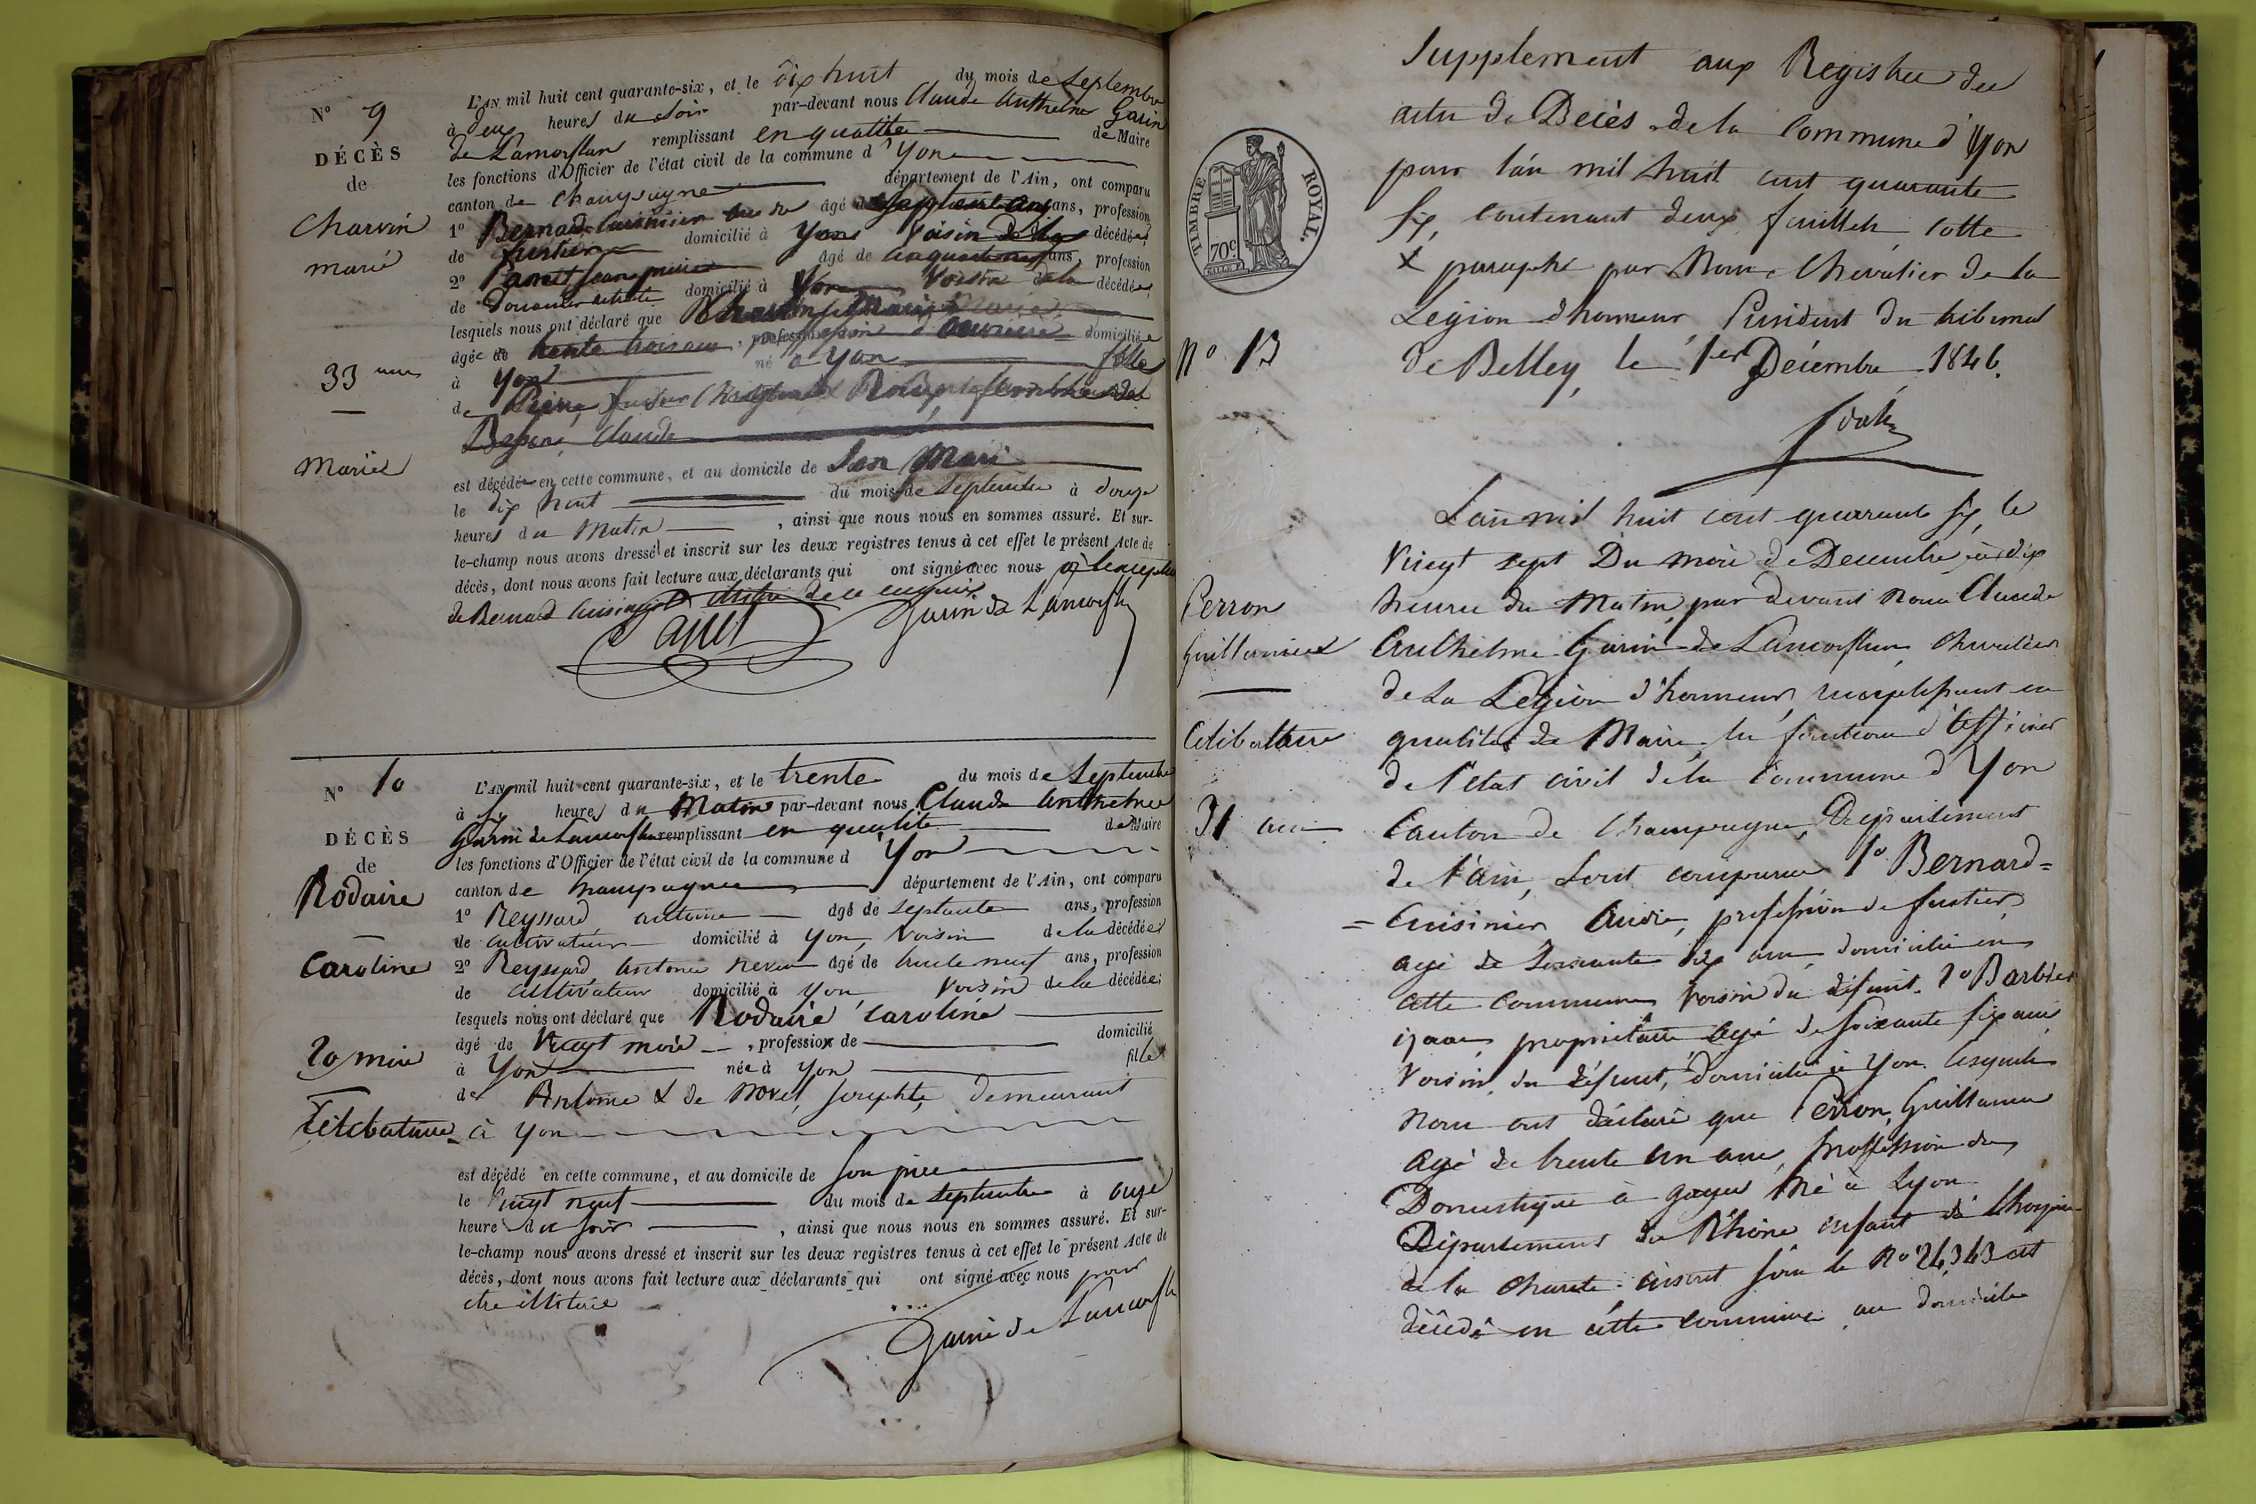 N° 9
DÉCÈS
de
Charvin
marié
33 ans
Mariée
L'AN mil huit cent quarante-six, et le dix huit du mois de Septembre
à deux heures du soir par-devant nous Claude Anthelme Garin
de Lamorflan remplissant en qualité de Maire
les fonctions d'Officier de l'état civil de la commune d'Yon
canton de Champagne département de l'Ain, ont comparu
1° Bernard Cuisinier âgé de ans, profession
de fustier domicilié à Yon voisin de la décédée,
2° Janet Jean âgé de ans, profession
de Douanier retraité domicilié à Yon voisin de la décédée,
lesquels nous ont déclaré que Charvin Marie
âgée de trente trois ans, profession d' ouvrière domiciliée
à Yon né à Yon fille
de Pierre
Claude
est décédée en cette commune, et au domicile de Son Mari
le dix huit du mois de Septembre à douze
heures du Matin, ainsi que nous nous en sommes assuré. Et sur-
le-champ nous avons dressé et inscrit sur les deux registres tenus à cet effet le présent Acte de
décès, dont nous avons fait lecture aux déclarants qui ont signé avec nous à l'exception
de Bernard Cuisinier de ce enquis
Janet Garin de Lamorfla
N° 10
DÉCÈS
de
Rodaire
Caroline
20 mois
Célibataire
L'AN mil huit cent quarante-six, et le trente du mois de Septembre
à six heures du Matin par-devant nous Claude Anthelme
Garin de Lamorflan remplissant en qualité de Maire
les fonctions d'Officier de l'état civil de la commune d'Yon
canton de Champagne département de l'Ain, ont comparu
1° Reyssard antoine âgé de septante ans, profession
de cultivateur domicilié à Yon, voisin de la décédée
2° Reyssard Antoine neveu âgé de trente neuf ans, profession
de cultivateur domicilié à Yon, voisin de la décédée;
lesquels nous ont déclaré que Rodaire Caroline
âgé de Vingt mois, profession de domicilié
à Yon née à Yon fille
de Antoine & de Morel, Josephte, demeurant
à Yon
est décédé en cette commune, et au domicile de son père
le Vingt neuf du mois de septembre à onze
heures du soir, ainsi que nous nous en sommes assuré. Et sur-
le-champ nous avons dressé et inscrit sur les deux registres tenus à cet effet le présent Acte de
décès, dont nous avons fait lecture aux déclarants qui ont signé avec nous pour
être illitéré
Garin de Lamorfla
TIMBRE ROYAL.
70c.
Supplement aux Registre des
actes de Décès de la Commune d'Yon
pour l'an mil huit cent quarante
six, contenant deux feuillets, cotté
& paraphé par Nous Chevalier de la
Légion d'honneur Président du tribunal
de Belley, le 1er Décembre 1846.
N° 13
Perron
Guillaumes
Célibataire
31 ans
L'an mil huit cent quarante six, le
Vingt sept Du mois de Decembre à dix
heures du Matin, par devant Nous Claude
Anthelme Garin de Lamorflan, Chevalier
de La Légion d'honneur, remplissant en
qualité de Maire, les fonctions d'Officier
de l'état civil de la Commune d'Yon
Canton de Champagne, Département
de l'ain, sont comparus 1° Bernard=
=Cuisinier André, profession de fustier,
agé de Soixante dix ans, domicilié en
cette Commune, voisin du défunt. 2° Barbier
propriétaire agé de soixante six ans
Voisin du défunt, domicilié à Yon. lesquels
nous ont déclaré que Perron, Guillaume
agé de trente un ans, profession de
Domestique à gages Né à Lyon
Département du Rhône enfant de l'hospice
de la charité inscrit sous le N° 24343 est
décédé en cette commune au domicile